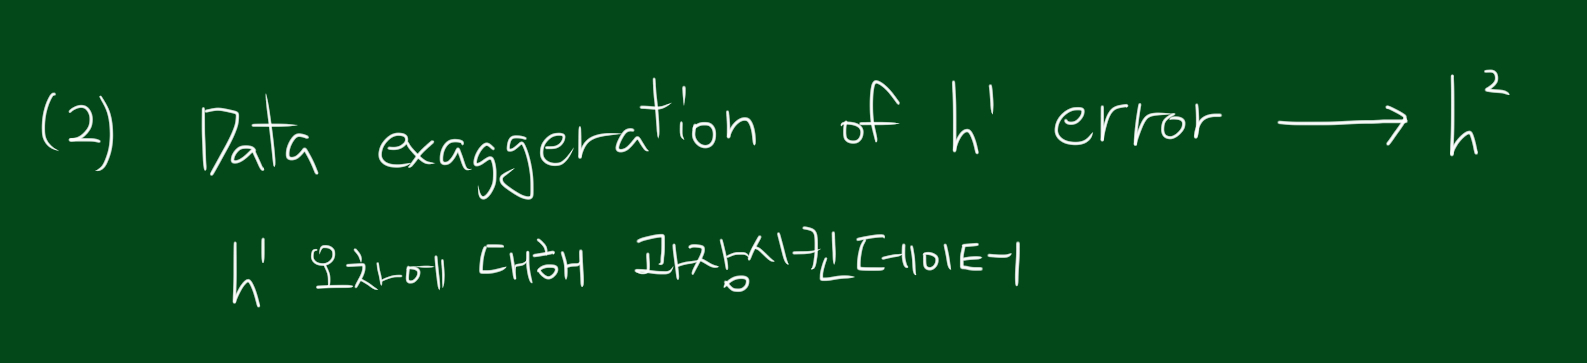 (2) Data exaggeration of h¹ error ⟶ h²
h¹ 오차에 대해 과장시킨 데이터